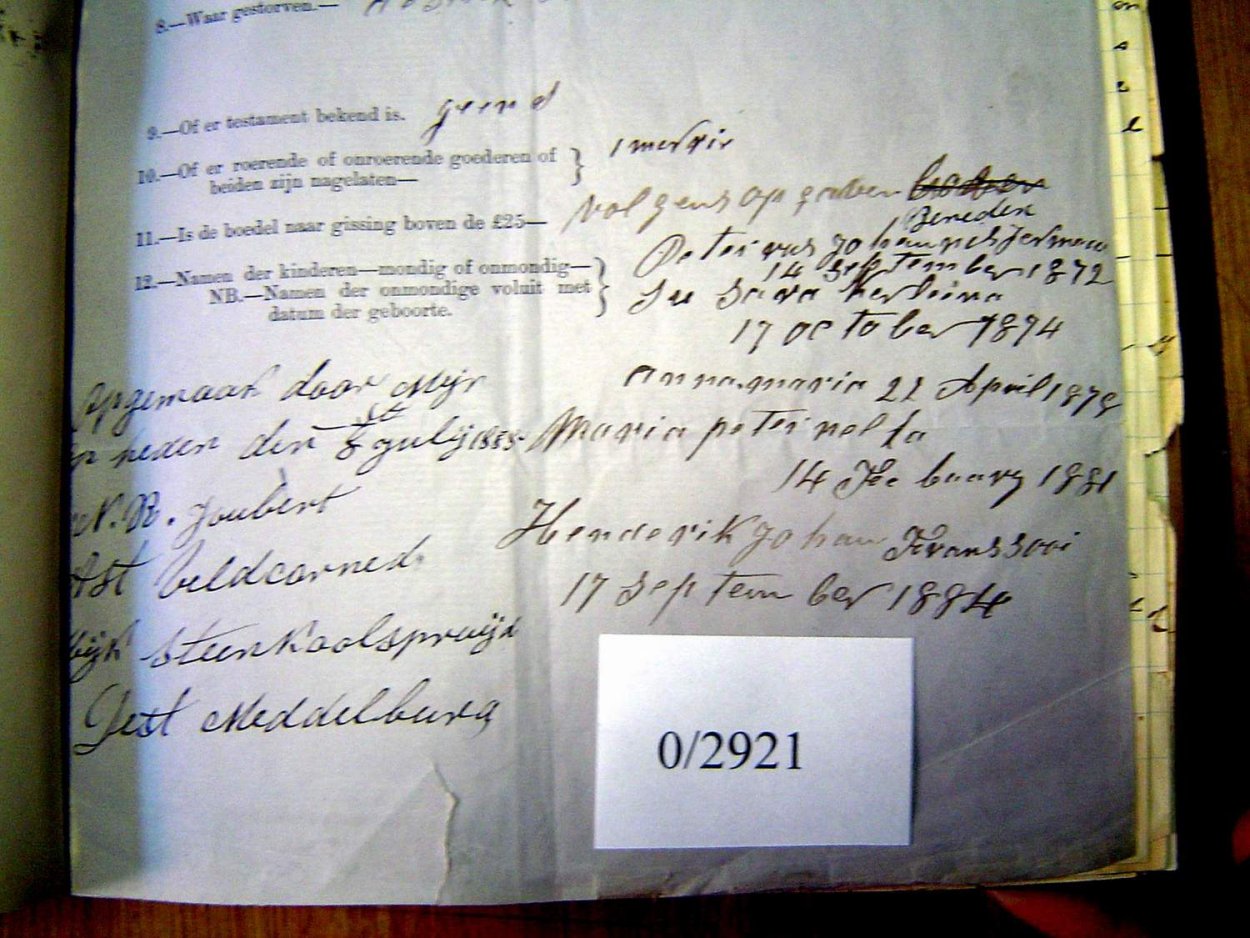 8.—Waar gestorven.—
9.—Of er testament bekend is. geen d
10.—Of er roerende of onroerende goederen of
beiden zijn nagelaten—
1 merrie
11.—Is de boedel naar gissing boven de £25—
volgens op gaben
Beneden
12.—Namen der kinderen—mondig of onmondig—
NB.—Namen der onmondige voluit met
datum der geboorte.
Peterus Johannes
14 September 1872
Sara
17 october 1874
annamaria 22 April 1878
Maria peternella
14 Febuary 1881
Henderik Johan Fransooi
17 september 1884
Opgemaak door Mijn
op heden den 8 july 1885
N. R. Joubert
Ast Veldcorned
Wijk Steenkoolspruijt
Dest Meddelburg
0/2921